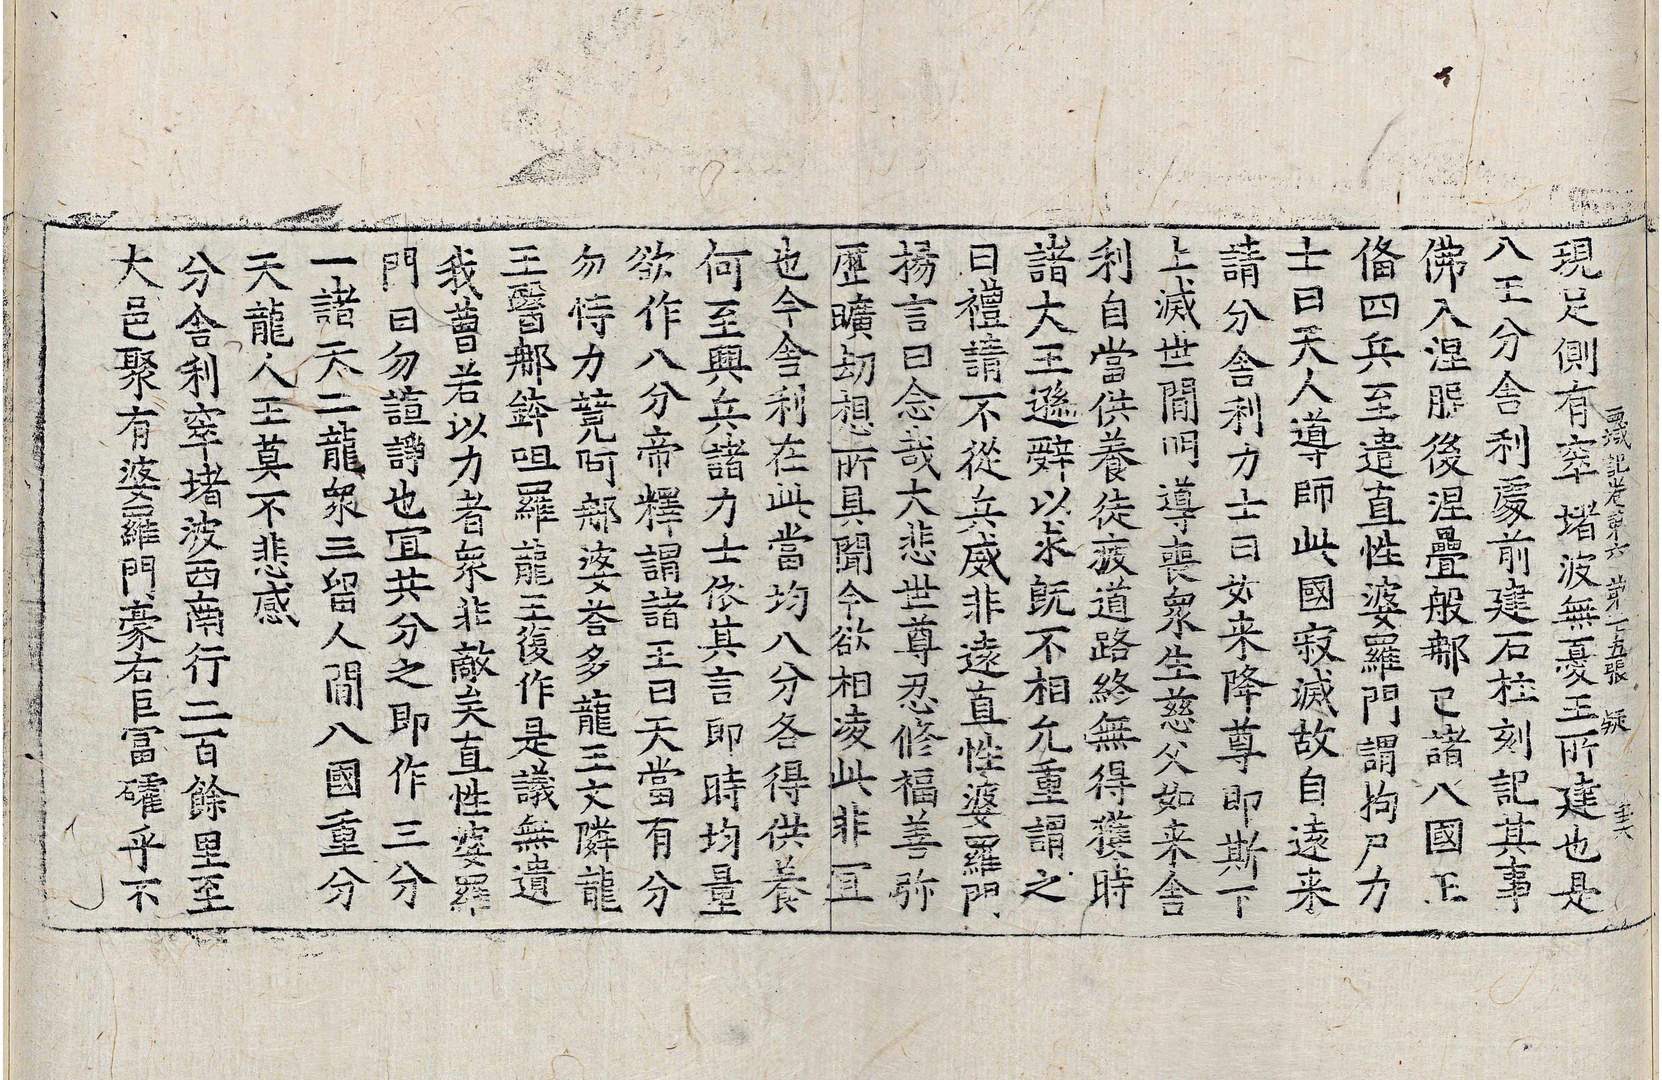 西域記卷第六　第十五張　疑
現足側有窣堵波無憂王所建也是
八王分舍利處前建石柱刻記其事
佛入涅槃後涅疊般那已諸八國王
俻四兵至遣直性婆羅門謂拘尸力
士曰天人導師此國寂滅故自遠来
請分舍利力士曰如来降尊即斯下
土滅世間明導喪衆生慈父如来舍
利自當供養徒疲道路終無得獲時
諸大王遜辤以求旣不相允重謂之
曰禮請不從兵威非遠直性婆羅門
揚言曰念哉大悲世尊忍修福善弥
歷曠劫想所具聞今欲相凌此非冝
也今舍利在此當均八分各得供養
何至興兵諸力士依其言即時均量
欲作八分帝釋謂諸王曰天當有分
勿恃力競阿那婆荅多龍王文隣龍
王醫那鉢呾羅龍王復作是議無遺
我曹若以力者衆非敵矣直性婆羅
門曰勿諠諍也冝共分之即作三分
一諸天二龍衆三留人間八國重分
天龍人王莫不悲感
分舍利窣堵波西南行二百餘里至
大邑聚有婆羅門豪右巨富確乎不